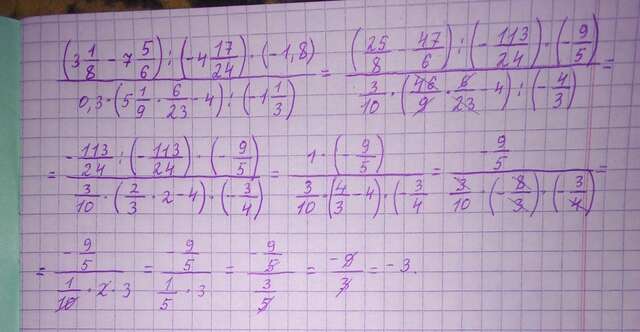 ((3 1/8 - 7 5/6) : (-4 17/24) · (-1,8)) / (0,3 · (5 1/9 · 6/23 - 4) : (-1 1/3)) = ((25/8 - 47/6) : (-113/24) · (-9/5)) / (3/10 · (46/9 · 6/23 - 4) : (-4/3)) =
= (-113/24 : (-113/24) · (-9/5)) / (3/10 · (2/3 · 2 - 4) · (-3/4)) = (1 · (-9/5)) / (3/10 · (4/3 - 4) · (-3/4) = (-9/5) / (3/10 · (-8/3) · (-3/4)) =
= (-9/5) / (1/10 · 2 · 3) = (-9/5) / (1/5 · 3) = (-9/5) / (3/5) = -9/3 = -3.